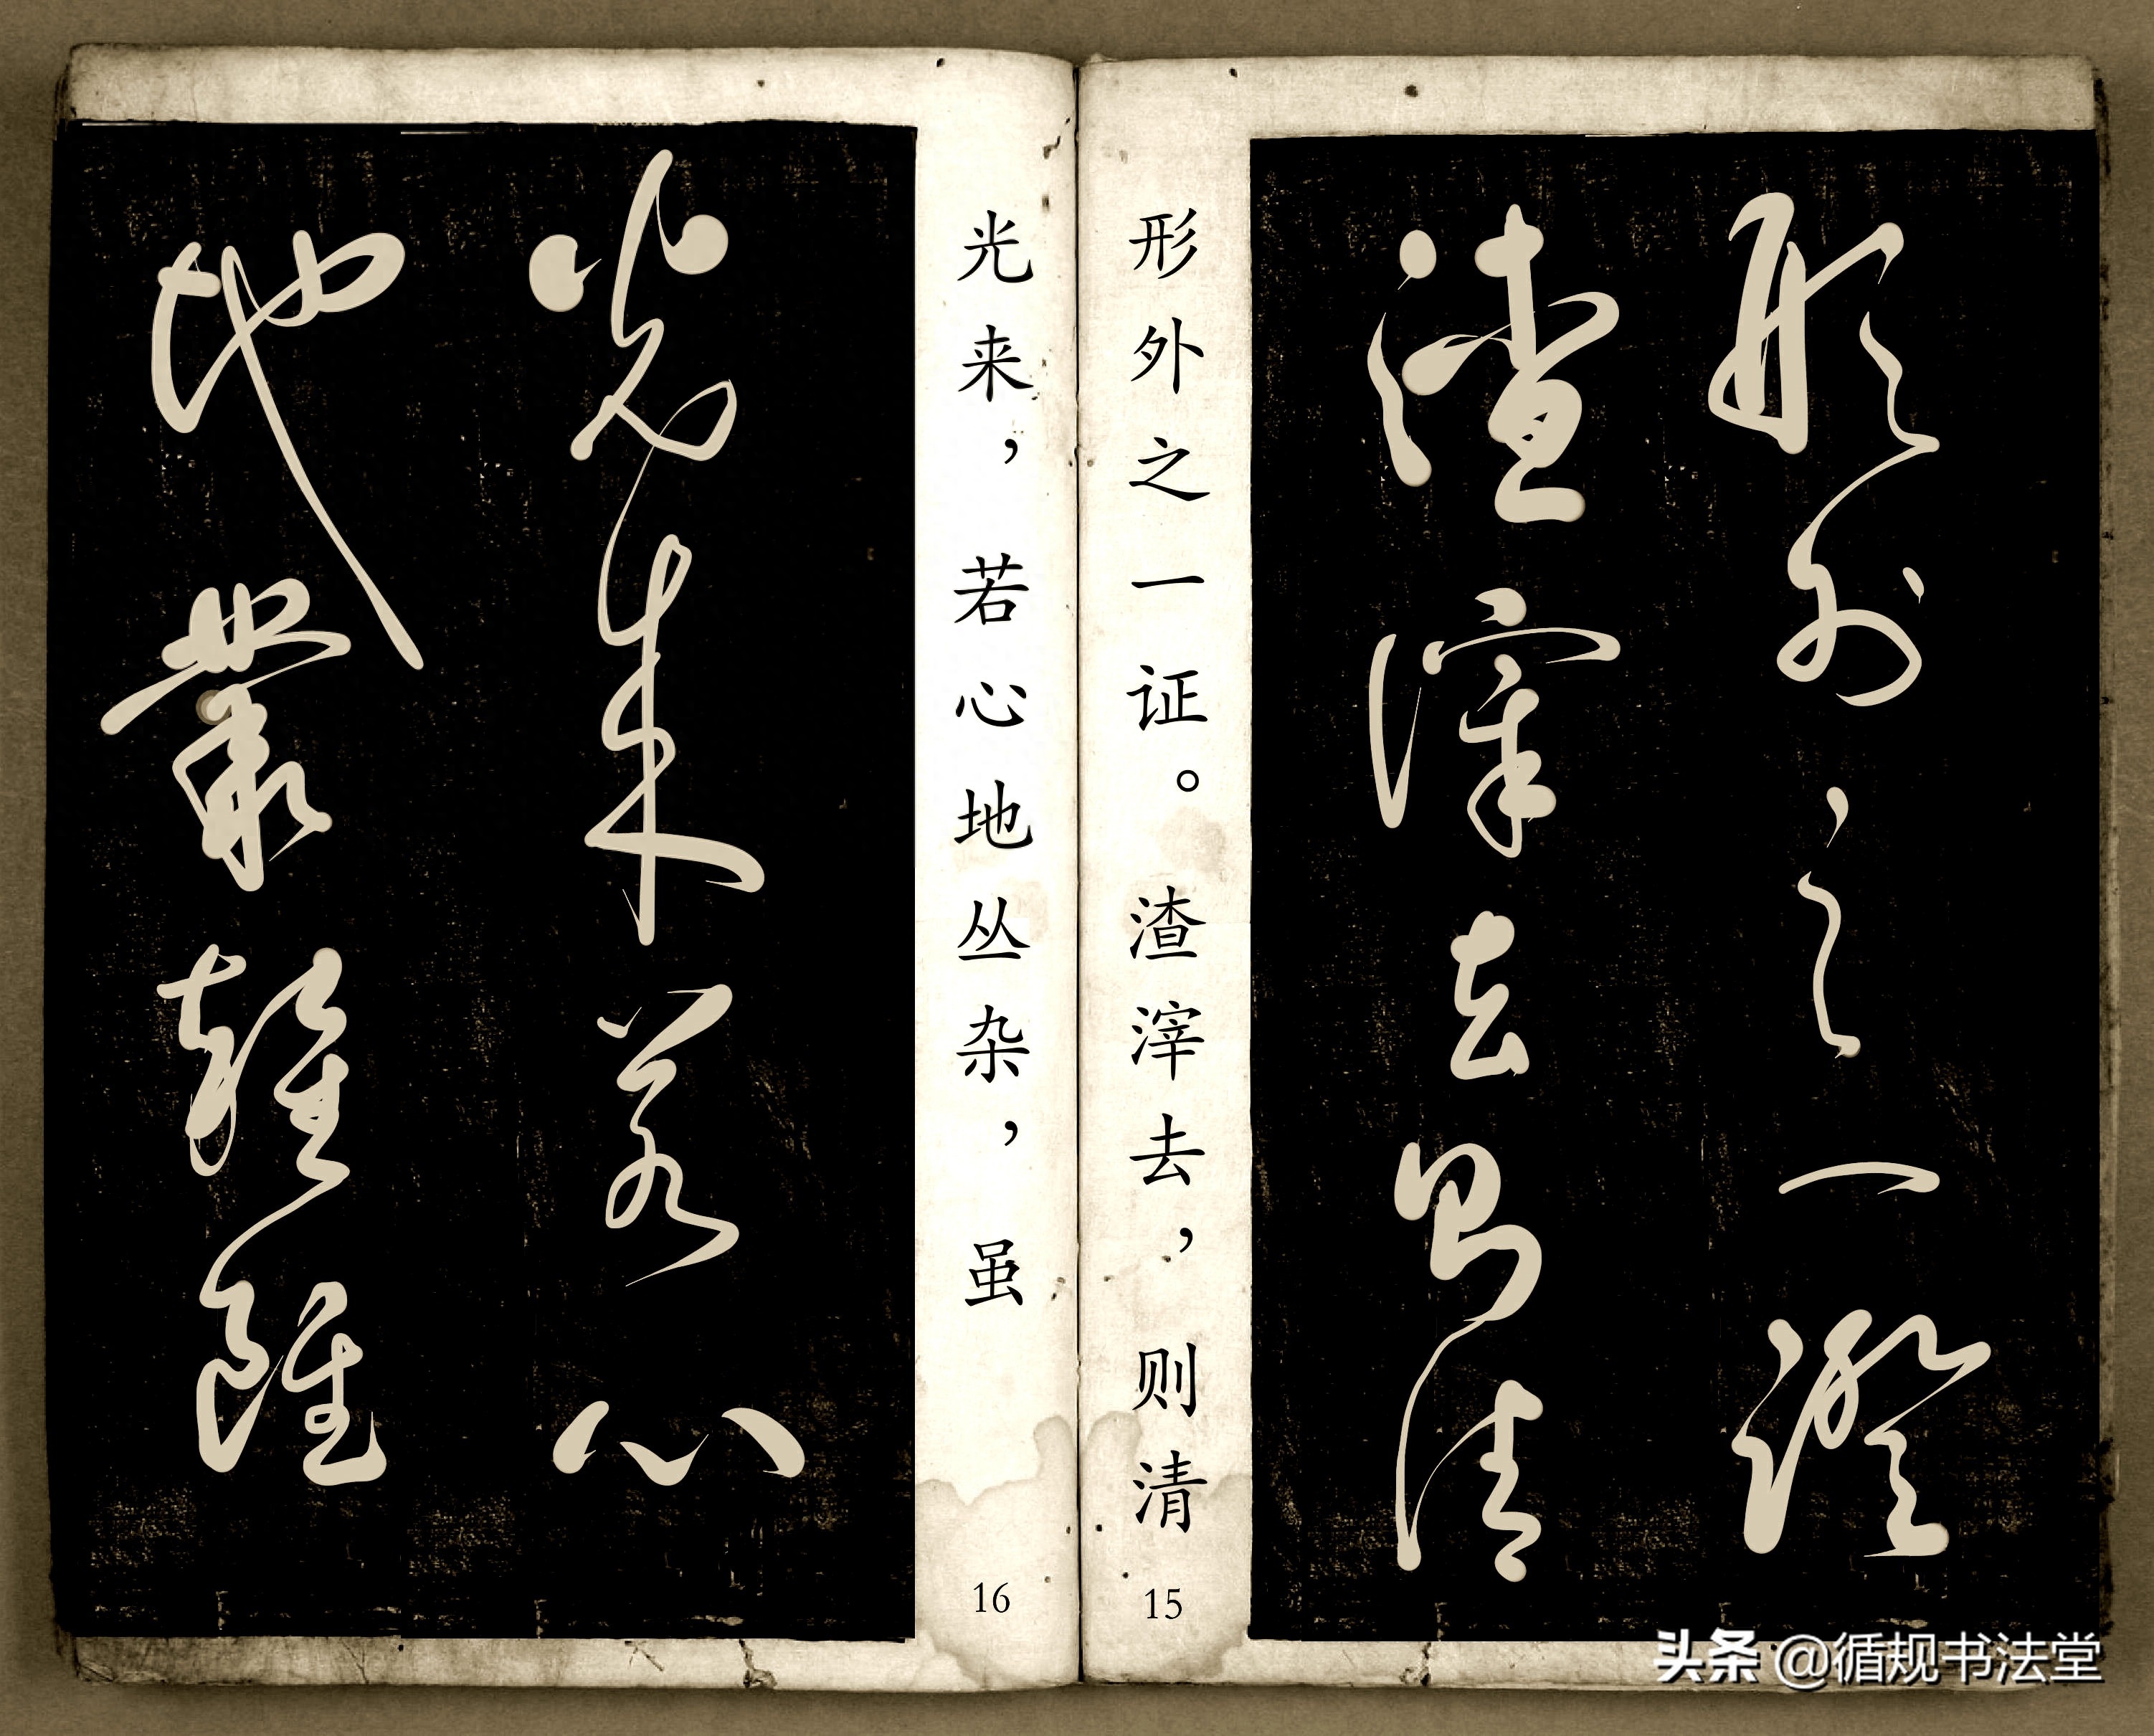 形外之一證
渣滓去即清
形外之一证。渣滓去，则清
15
光来，若心地丛杂，虽
16
光来若心
地叢雜雖
头条 @循规书法堂